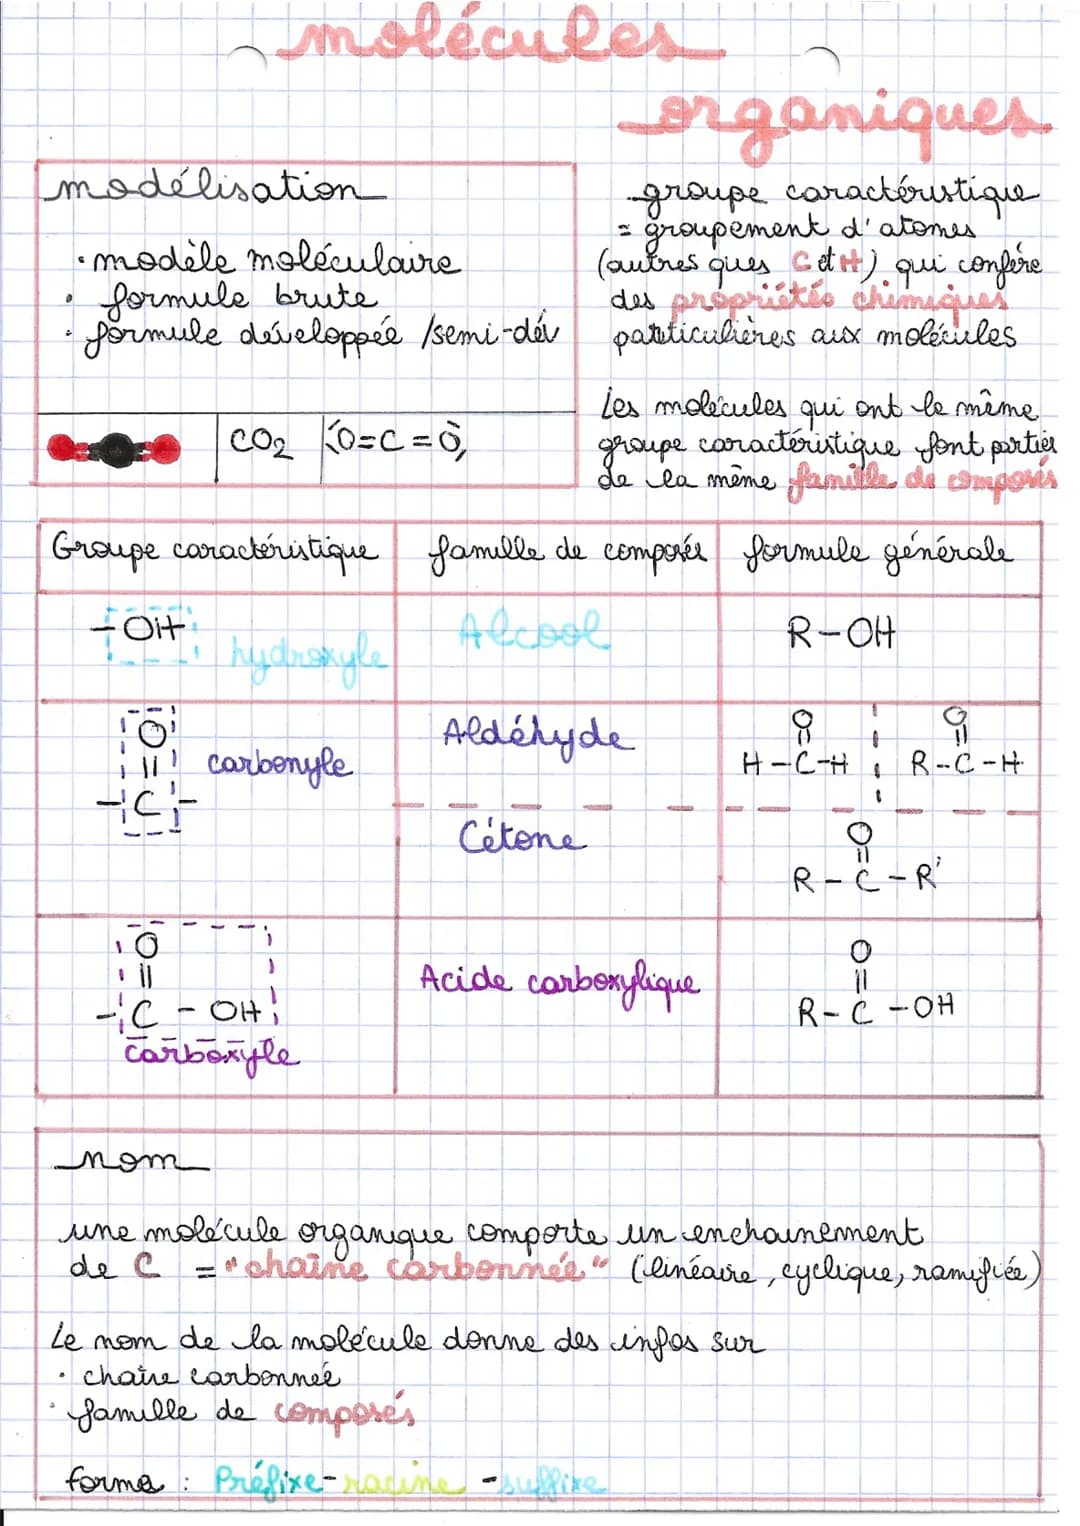 molécules
organiques
modélisation
• modèle moléculaire
• formule brute
• formule développée /semi-dév
CO2 O=C=O
groupe caractéristique
= groupement d'atomes
(autres ques C et H) qui confère
des propriétés chimiques
particulières aux molécules
Les molécules qui ont le même
groupe caractéristique font partier
de la même famille de composés
Groupe caractéristique famille de composés formule générale
-OH hydroxyle Alcool R-OH
O
||
-C-
carbonyle
Aldéhyde
O
||
H-C-H
O
||
R-C-H
Cétone
O
||
R-C-R'
O
||
-C-OH
carboxyle
Acide carboxylique
O
||
R-C-OH
nom
une molécule organique comporte un enchainement
de C = "chaîne carbonnée" (linéaire, cyclique, ramifiée)
Le nom de la molécule donne des infos sur
• chaîne carbonnée
• famille de composés
forme : Préfixe-racine-suffixe